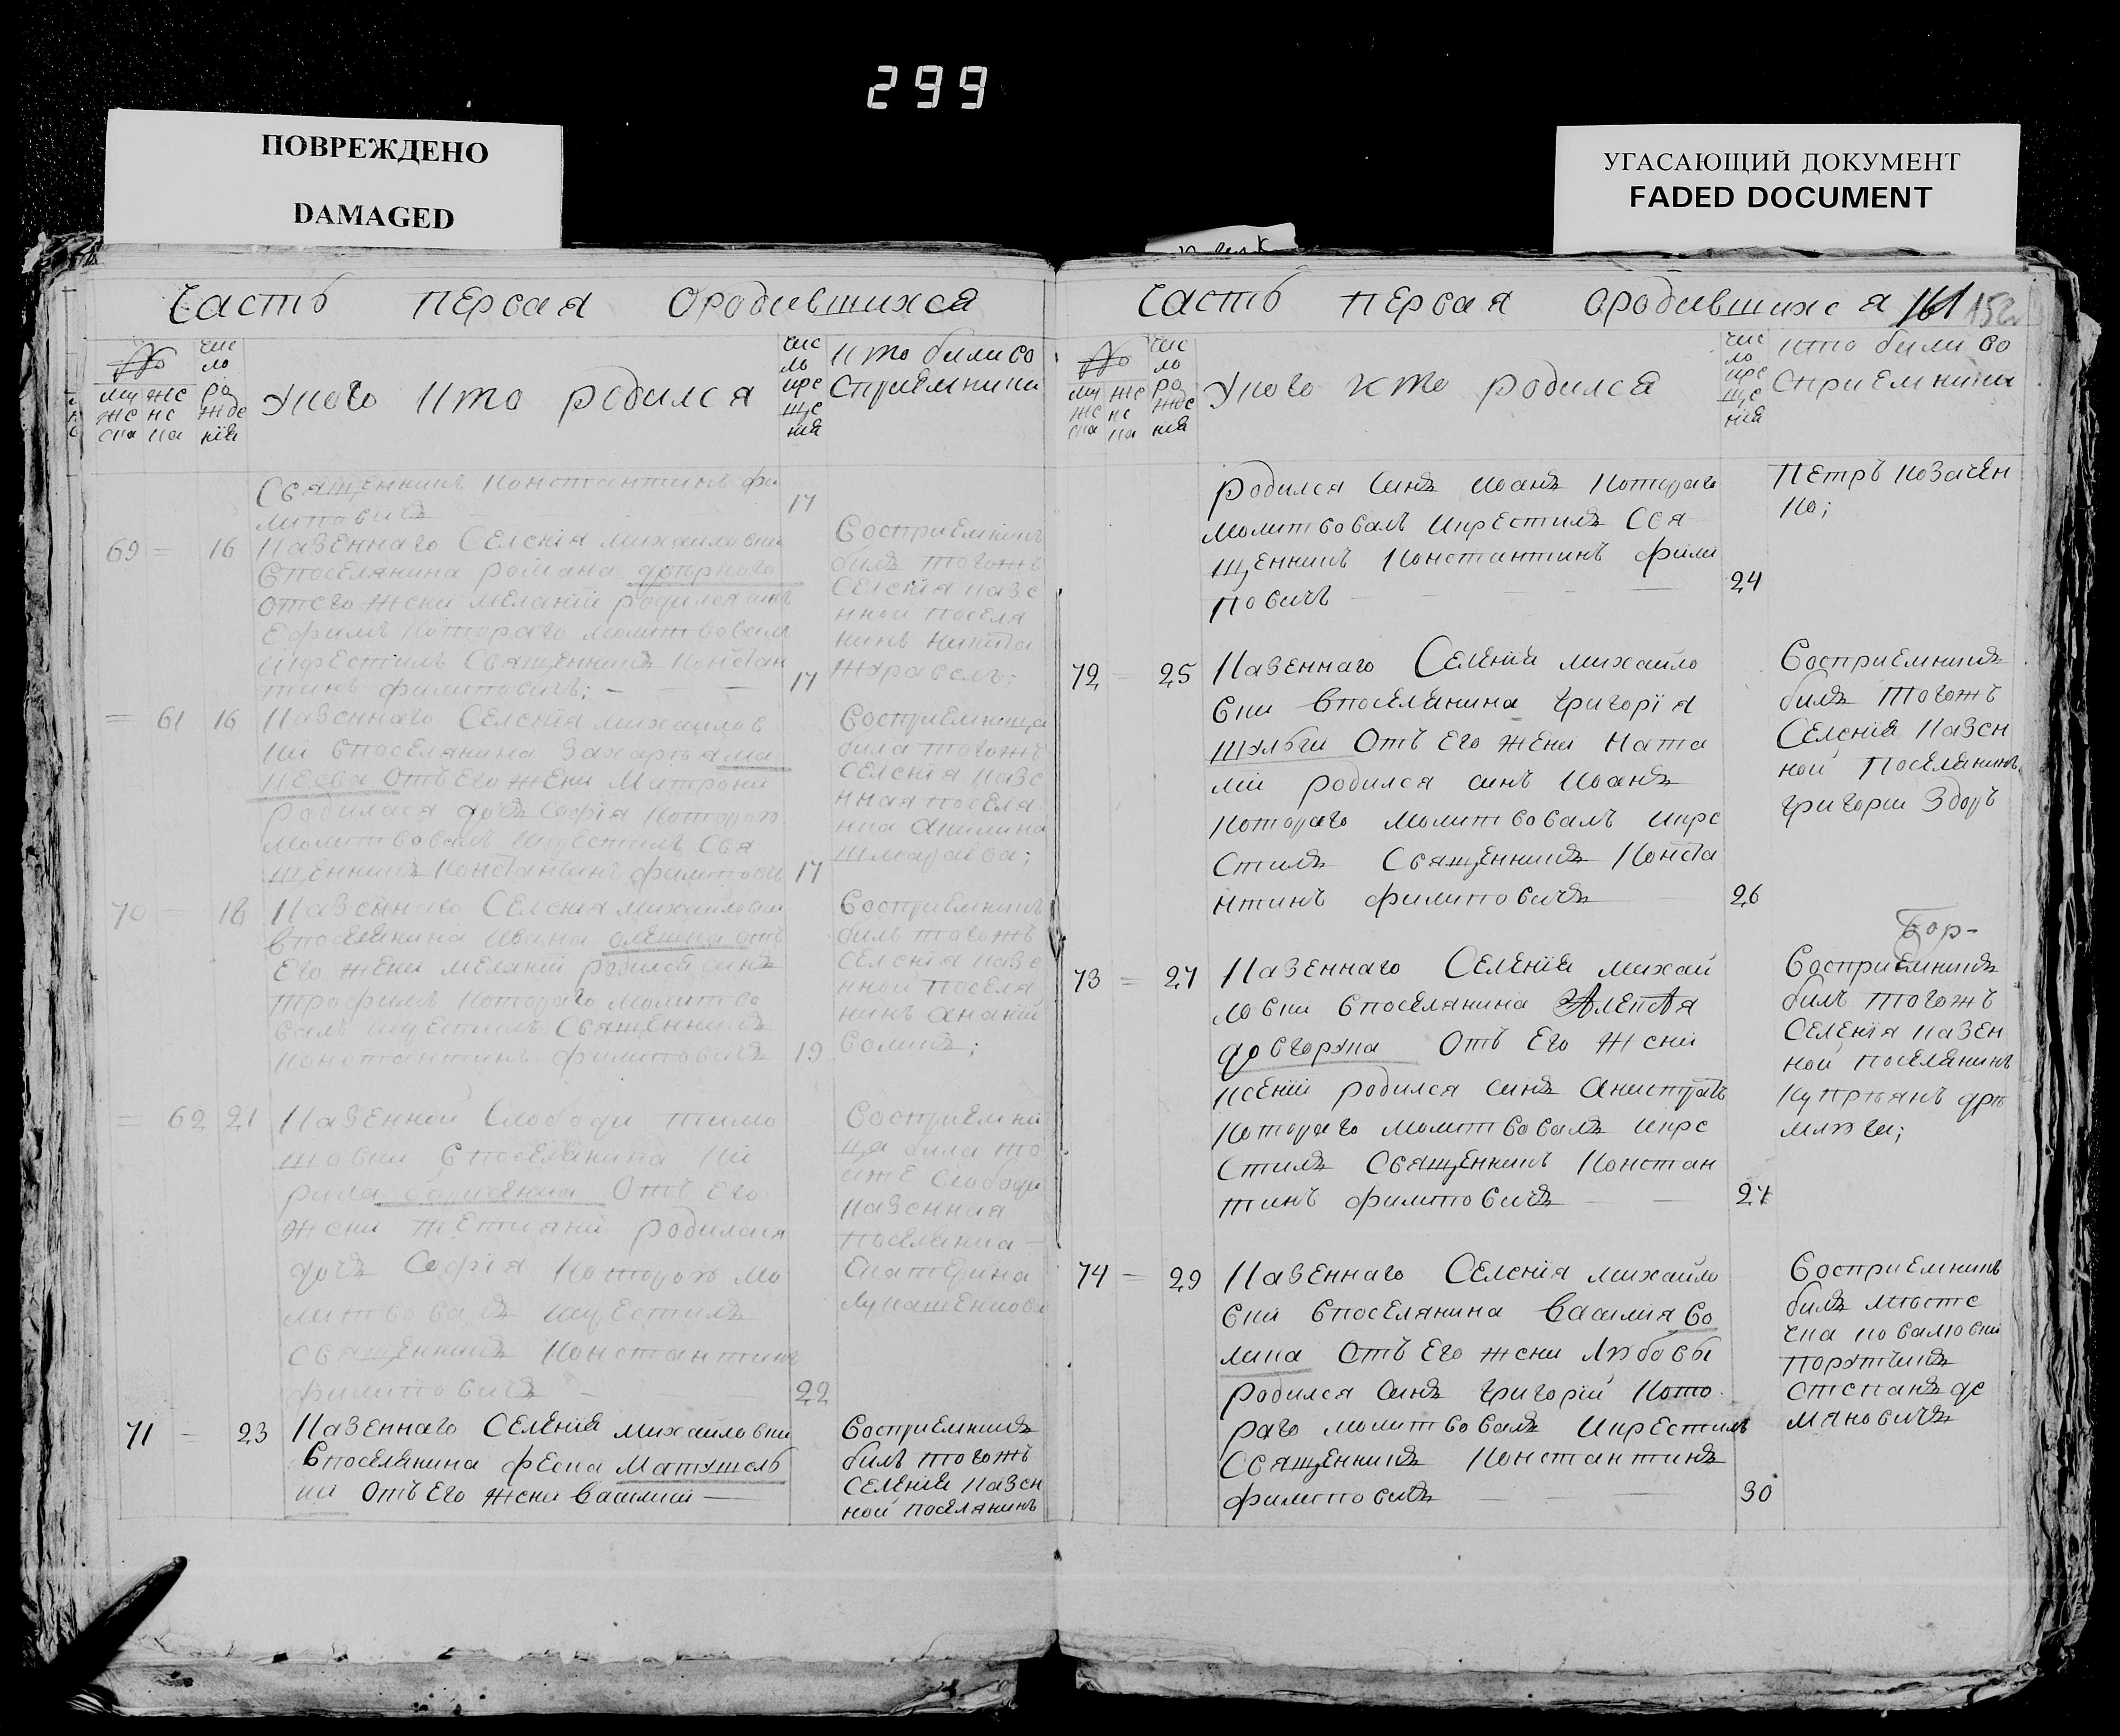 299
ПОВРЕЖДЕНО
DAMAGED
УГАСАЮЩИЙ ДОКУМЕНТ
FADED DOCUMENT
Часть первая ородившихся
№
муже
ска
жен
ска
число
рожде
нія
Укого кто родился
чис
ло
кре
ще
нія
кто били во
сприемники
Священникъ Константинъ фи
липовичъ
17
69 = 16
Казеннаго Селенія михаиловки
впоселянина романа
отъего жени меланіи родился синъ
Ефимъ Котораго молитвовалъ
икрестилъ Священникъ Констан
тинъ филиповичъ; — — —
17
Восприемникъ
билъ тогожъ
Селенія казе
нной поселя
нинъ никита
журавель;
= 61 16
Казеннаго Селенія михаилов
ки впоселянина Захарья ма
кеева Отъ Его жени Матрони
родилася дочъ Софія Которою
молитвовалъ икрестилъ Свя
щенникъ Константинъ филипович
17
Восприемница
била тогожъ
Селенія казе
нная поселя
нка Акилина
70 = 18
Казеннаго Селенія михаиловки
впоселянина ивана олешка отъ
Его жени меланіи родился синъ
трофимъ Котораго молитво
валъ икрестилъ Священникъ
Константинъ филиповичъ
19
Восприемникъ
билъ тогожъ
Селенія казе
нной поселя
нинъ Ананій
= 62 21
Казенной Слободи тимо
шовки впоселянина Ки
рила Отъ Его
жени тетияни родилася
дочъ Софія Которою мо
литвовалъ икрестилъ
Священникъ Константинъ
филиповичъ — — —
22
Восприемни
ца била то
иже Слободи
казенная
поселянка —
Екатерина
Лукашенкова
71 = 23
Казеннаго Селенія михаиловки
впоселянина феска Матушель
ки отъ Его жени василии —
Восприемникъ
билъ тогожъ
Селенія казен
ной поселянинъ
Часть первая ородившихся 161
№
муже
ска
жен
ска
число
рожде
нія
Укого кто родился
чис
ло
кре
ще
нія
кто били во
сприемники
родился синъ иоанъ Котораго
молитвовалъ икрестилъ Свя
щенникъ Константинъ фили
повичъ — — — —
24
Петръ Козачен
ко;
72 = 25
Казеннаго Селенія михаило
вки впоселянина григорія
шульги Отъ Его жени ната
ліи родился синъ иоанъ
Котораго молитвовалъ икре
стилъ Священникъ Конста
нтинъ филиповичъ —
26
Восприемникъ
билъ тогожъ
Селенія казен
ной поселянинъ
григории Здоръ
73 = 27
Казеннаго Селенія михай
ловки впоселянина Алексѣя
довгорука Отъ Его жени
ксеніи родился синъ
Котораго молитвовалъ икре
стилъ Священникъ Констан
тинъ филиповичъ — —
27
Бор-
Восприемникъ
билъ тогожъ
Селенія казен
ной поселянинъ
Купріянъ дре
млюга;
74 = 29
Казеннаго Селенія михайло
вки впоселянина василия во
лика Отъ Его жени любовы
родился синъ григорій Кото
раго молитвовалъ икрестилъ
Священникъ Константинъ
филиповичъ — — —
30
Восприемникъ
билъ мѣсте
чка новаловки
поручикъ
Отепанъ де
мяновичъ